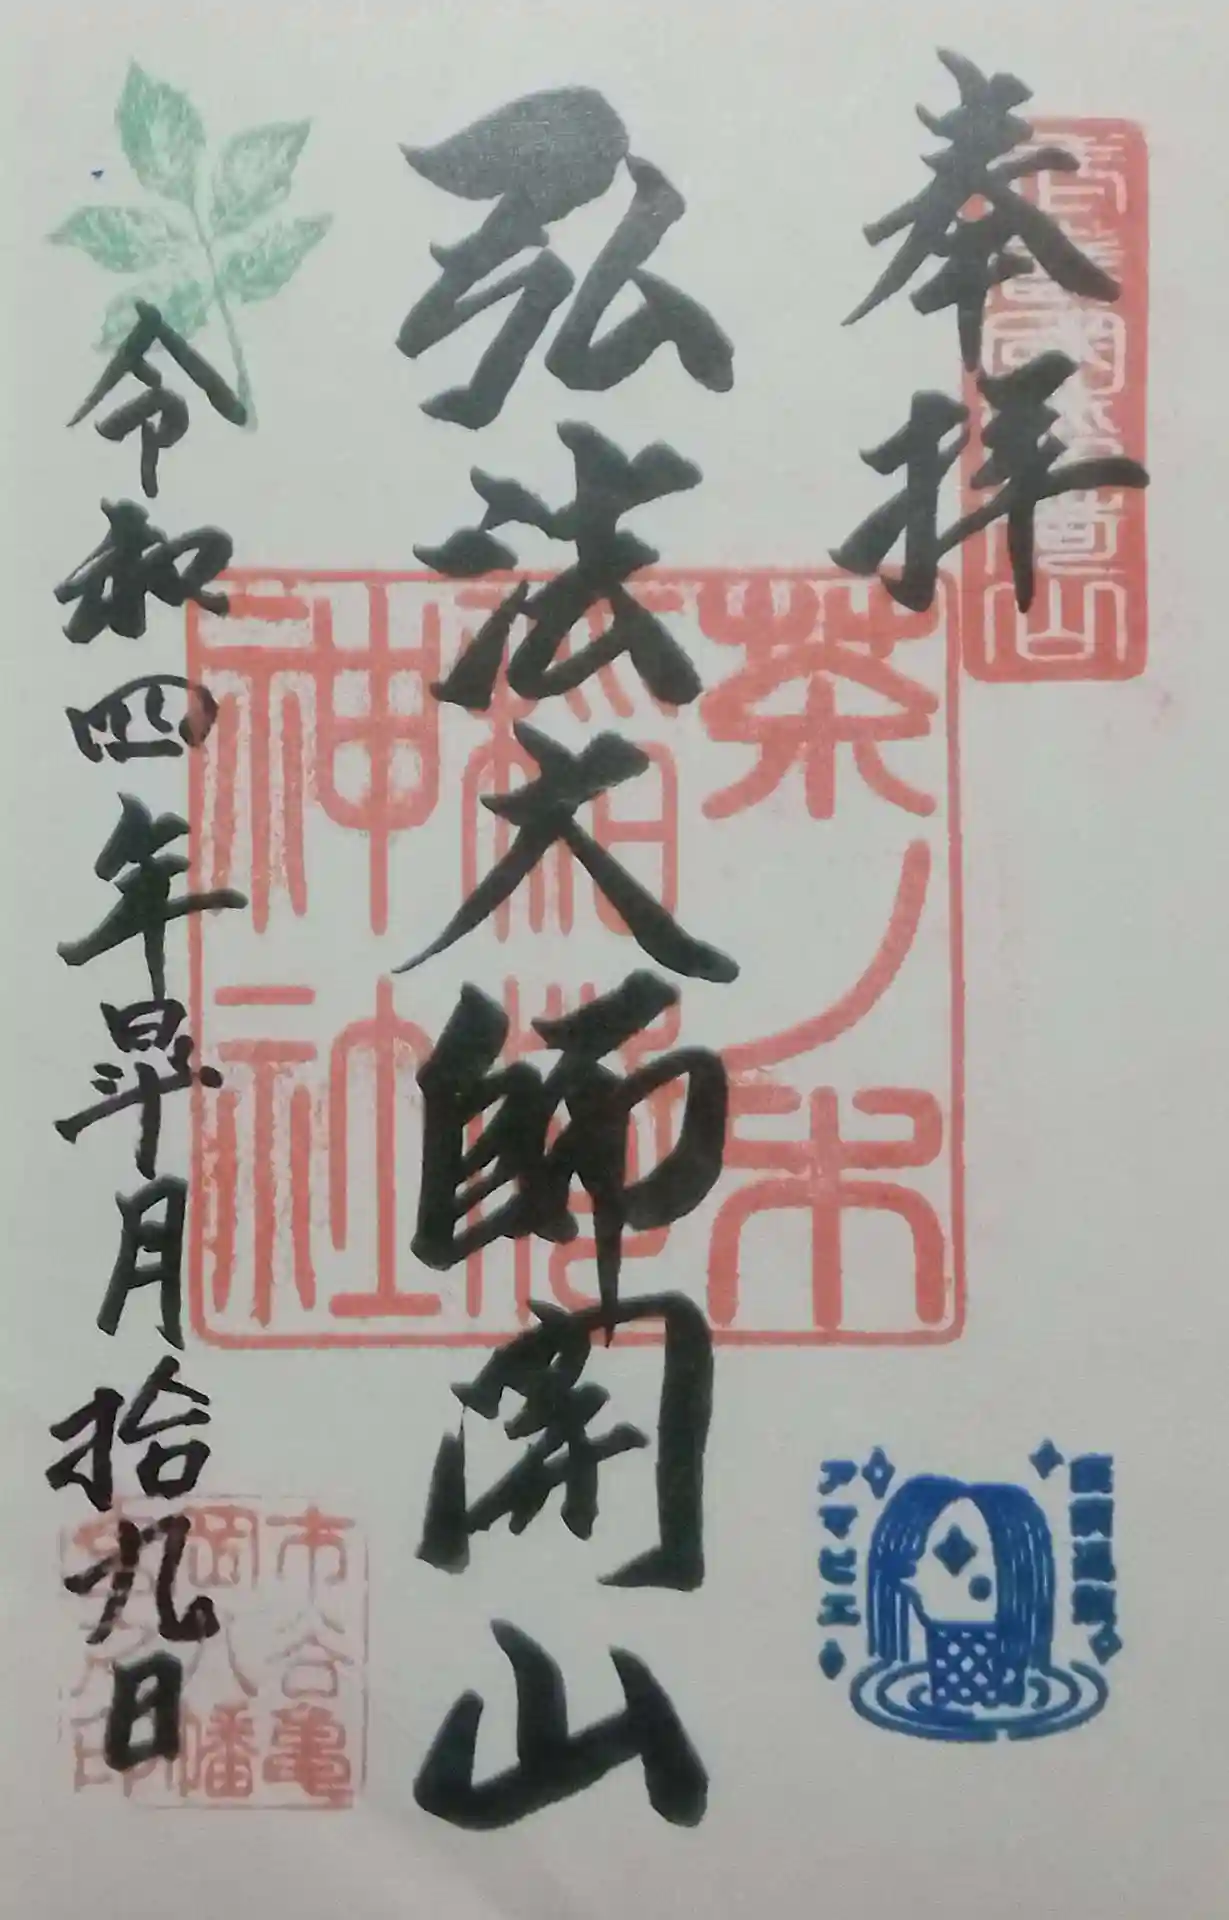 奉拝
弘法大師開山
令和四年
月拾九日
茶ノ木
稲荷
神社
疫病退散
アマビエ
市谷亀
岡八幡
宮之印